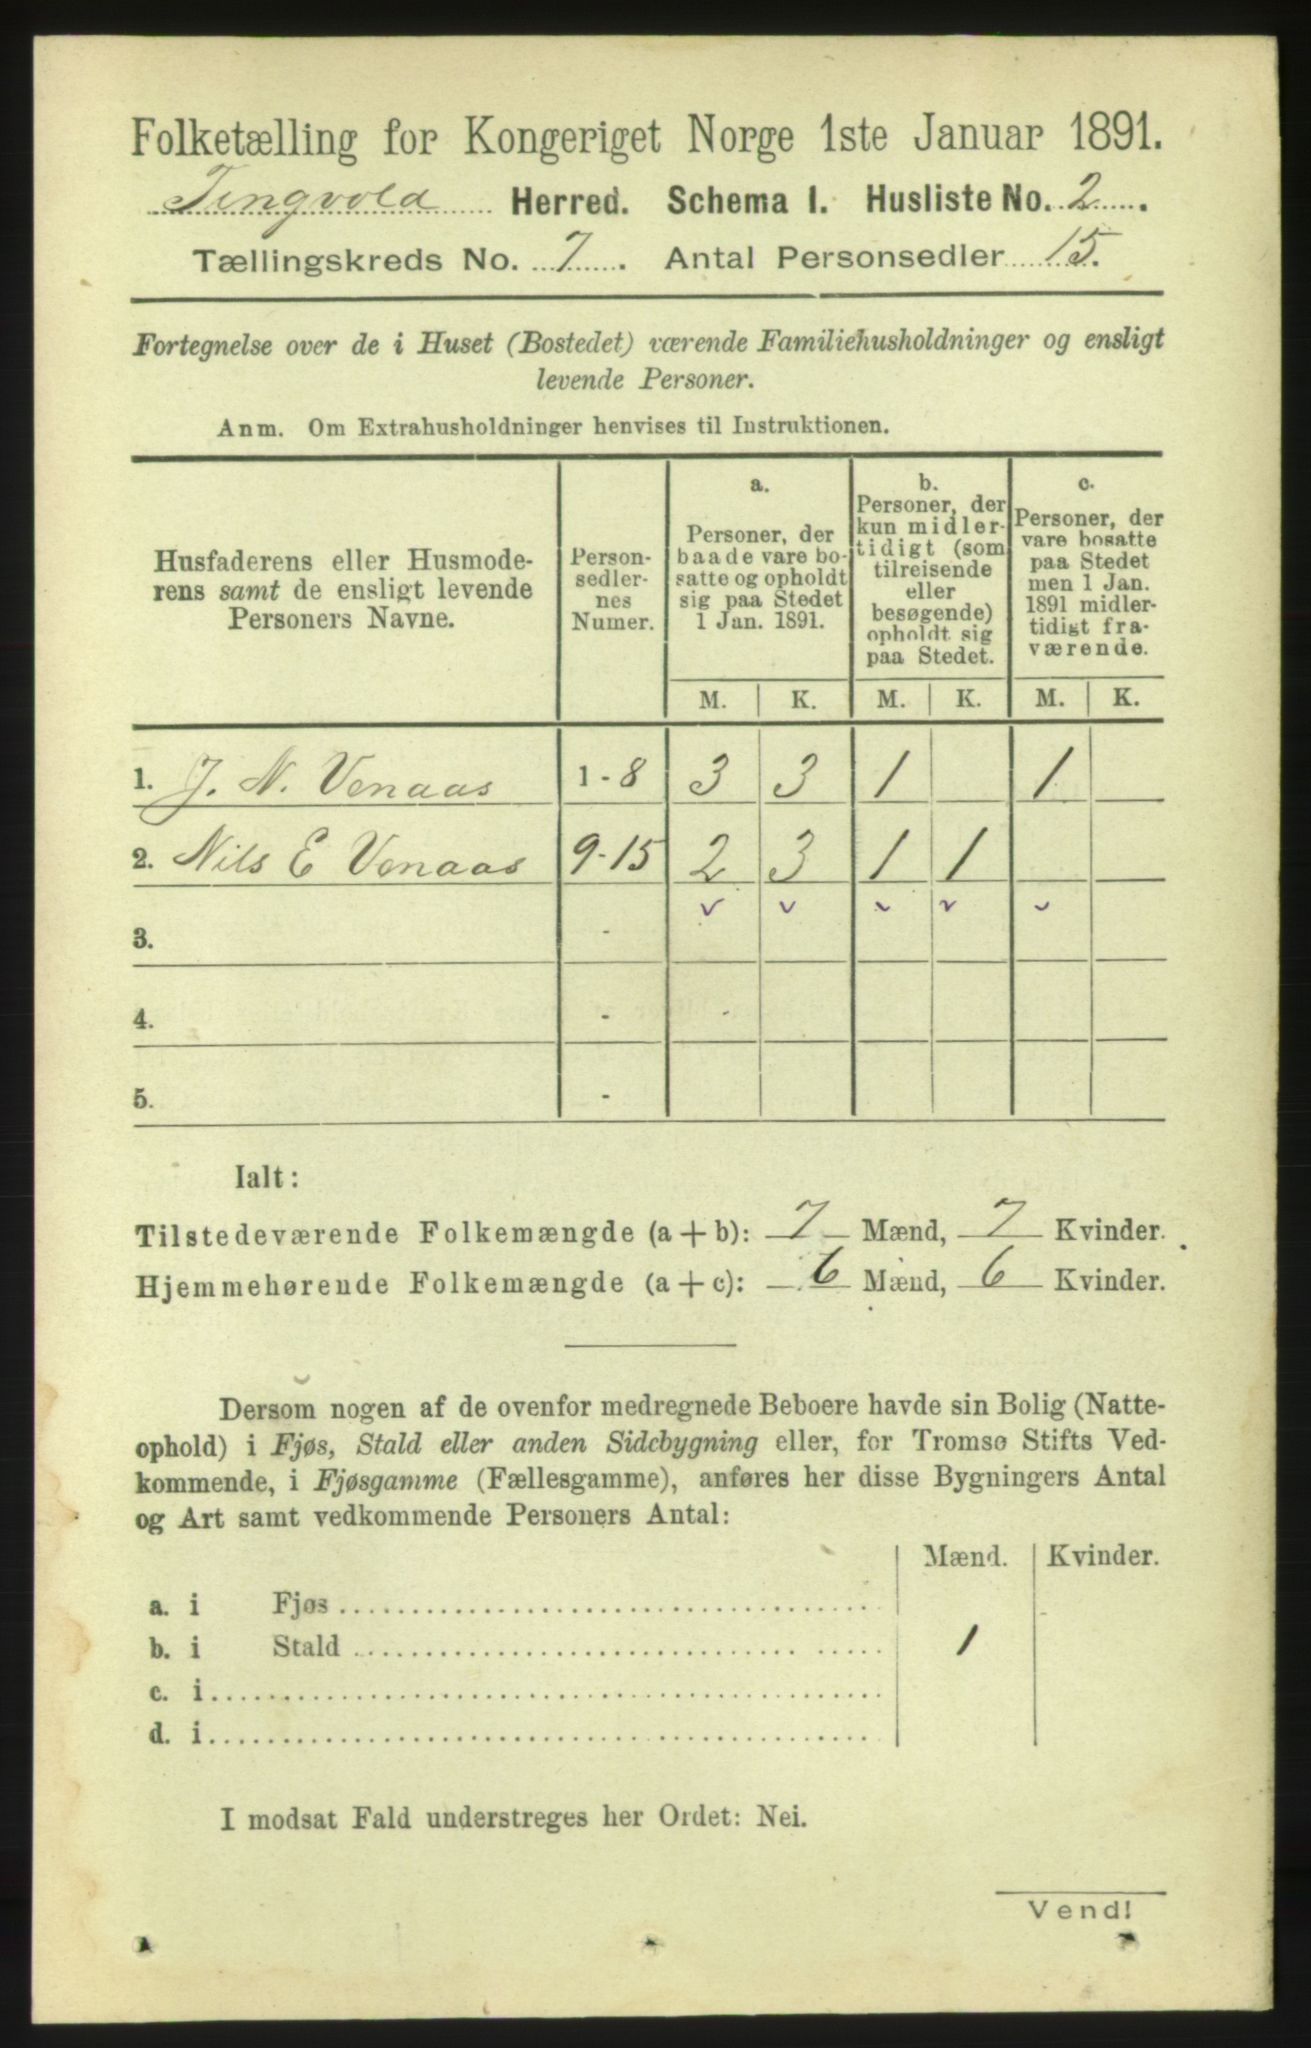 Folketælling for Kongeriget Norge 1ste Januar 1891.
Tingvold Herred. Schema I. Husliste No. 2.
Tællingskreds No. 7. Antal Personsedler 15.
Fortegnelse over de i Huset (Bostedet) værende Familiehusholdninger og ensligt
levende Personer.
Anm. Om Extrahusholdninger henvises til Instruktionen.
Husfaderens eller Husmode-
rens samt de ensligt levende
Personers Navne.
Person-
sedler-
nes
Numer.
a.
Personer, der
baade vare bo-
satte og opholdt
sig paa Stedet
1 Jan. 1891.
b.
Personer, der
kun midler-
tidigt (som
tilreisende
eller
besøgende)
opholdt sig
paa Stedet.
c.
Personer, der
vare bosatte
paa Stedet
men 1 Jan.
1891 midler-
tidigt fra-
værende.
M. K. M. K. M. K.
1. J. N. Venaas 1-8 3 3 1 1
2. Nils E Venaas 9-15 2 3 1 1
3. -
4. -
5. -
Ialt:
Tilstedeværende Folkemængde (a + b): 7 Mænd, 7 Kvinder.
Hjemmehørende Folkemængde (a + c): 6 Mænd, 6 Kvinder.
Dersom nogen af de ovenfor medregnede Beboere havde sin Bolig (Natte-
ophold) i Fjøs, Stald eller anden Sidebygning eller, for Tromsø Stifts Ved-
kommende, i Fjøsgamme (Fællesgamme), anføres her disse Bygningers Antal
og Art samt vedkommende Personers Antal:
Mænd. Kvinder.
a. i Fjøs
b. i Stald 1
c. i
d. i
I modsat Fald understreges her Ordet: Nei.
Vend!